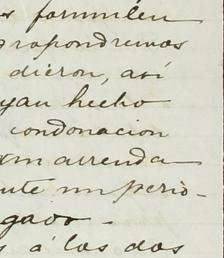 s formulen
propondremos
dieron, así
yan hecho
condonacion
arrenda
nte un perío-
s á los dos